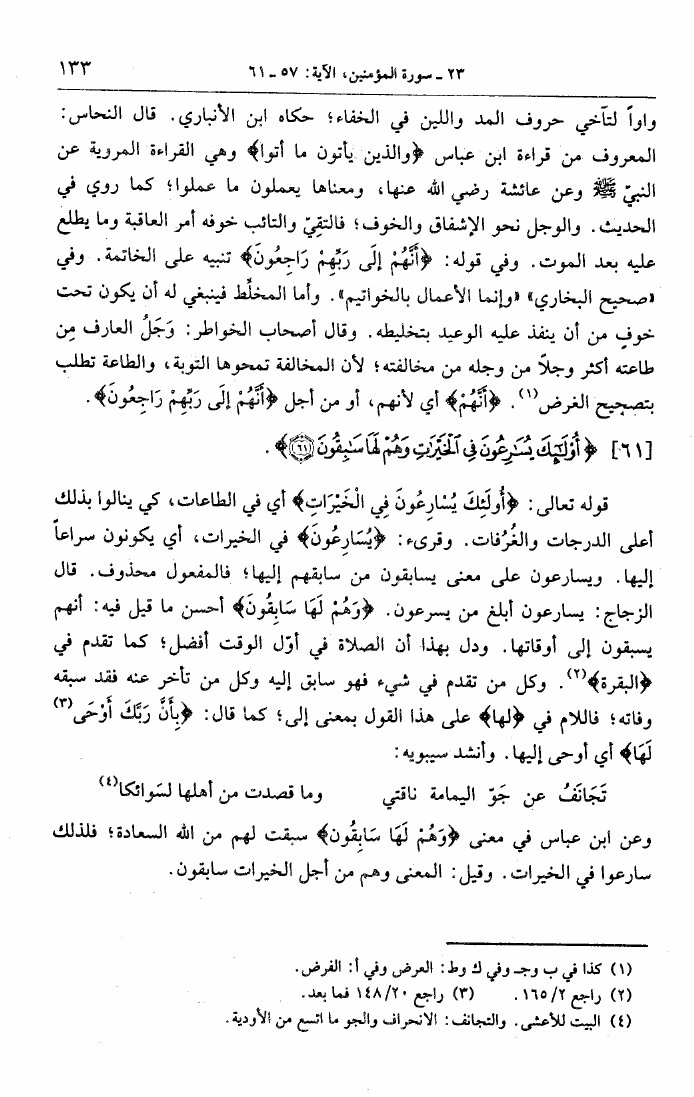 ٢٣ - سورة المؤمنين، الآية: ٥٧ - ٦١
١٣٣
واواً لتآخي حروف المد واللين في الخفاء؛ حكاه ابن الأنباري. قال النحاس:
المعروف من قراءة ابن عباس ﴿والذين يأتون ما أتوا﴾ وهي القراءة المروية عن
النبيّ ﷺ وعن عائشة رضي الله عنها، ومعناها يعملون ما عملوا؛ كما روي في
الحديث. والوجل نحو الإشفاق والخوف؛ فالتقيّ والتائب خوفه أمر العاقبة وما يطلع
عليه بعد الموت. وفي قوله: ﴿أَنَّهُمْ إِلَى رَبِّهِمْ رَاجِعُونَ﴾ تنبيه على الخاتمة. وفي
«صحيح البخاري» «وإنما الأعمال بالخواتيم». وأما المخلِّط فينبغي له أن يكون تحت
خوفٍ من أن ينفذ عليه الوعيد بتخليطه. وقال أصحاب الخواطر: وَجَلُ العارف مِن
طاعته أكثر وجلاً من وجله من مخالفته؛ لأن المخالفة تمحوها التوبة، والطاعة تطلب
بتصحيح الغرض(١). ﴿أَنَّهُمْ﴾ أي لأنهم، أو من أجل ﴿أَنَّهُمْ إِلَى رَبِّهِمْ رَاجِعُونَ﴾.
[٦١] ﴿أُوْلَٰٓئِكَ يُسَٰرِعُونَ فِي ٱلْخَيْرَٰتِ وَهُمْ لَهَا سَٰبِقُونَ ۝٦١﴾.
قوله تعالى: ﴿أُولَئِكَ يُسَارِعُونَ فِي الْخَيْرَاتِ﴾ أي في الطاعات، كي ينالوا بذلك
أعلى الدرجات والغُرُفات. وقرىء: ﴿يُسَارِعُونَ﴾ في الخيرات، أي يكونون سراعاً
إليها. ويسارعون على معنى يسابقون من سابقهم إليها؛ فالمفعول محذوف. قال
الزجاج: يسارعون أبلغ من يسرعون. ﴿وَهُمْ لَهَا سَابِقُونَ﴾ أحسن ما قيل فيه: أنهم
يسبقون إلى أوقاتها. ودل بهذا أن الصلاة في أوّل الوقت أفضل؛ كما تقدم في
﴿البقرة﴾(٢). وكل من تقدم في شيء فهو سابق إليه وكل من تأخر عنه فقد سبقه
وفاته؛ فاللام في ﴿لها﴾ على هذا القول بمعنى إلى؛ كما قال: ﴿بِأَنَّ رَبَّكَ أَوْحَى(٣)
لَهَا﴾ أي أوحى إليها. وأنشد سيبويه:
تَجَانَفُ عن جَوّ اليمامة ناقتي وما قصدت من أهلها لسَوائكا(٤)
وعن ابن عباس في معنى ﴿وَهُمْ لَهَا سَابِقُون﴾ سبقت لهم من الله السعادة؛ فلذلك
سارعوا في الخيرات. وقيل: المعنى وهم من أجل الخيرات سابقون.
(١) كذا في ب وجـ وفي ك وط: العرض وفي أ: الفرض.
(٢) راجع ١٦٥/٢. (٣) راجع ١٤٨/٢٠ فما بعد.
(٤) البيت للأعشى. والتجانف: الانحراف والجو ما اتسع من الأودية.